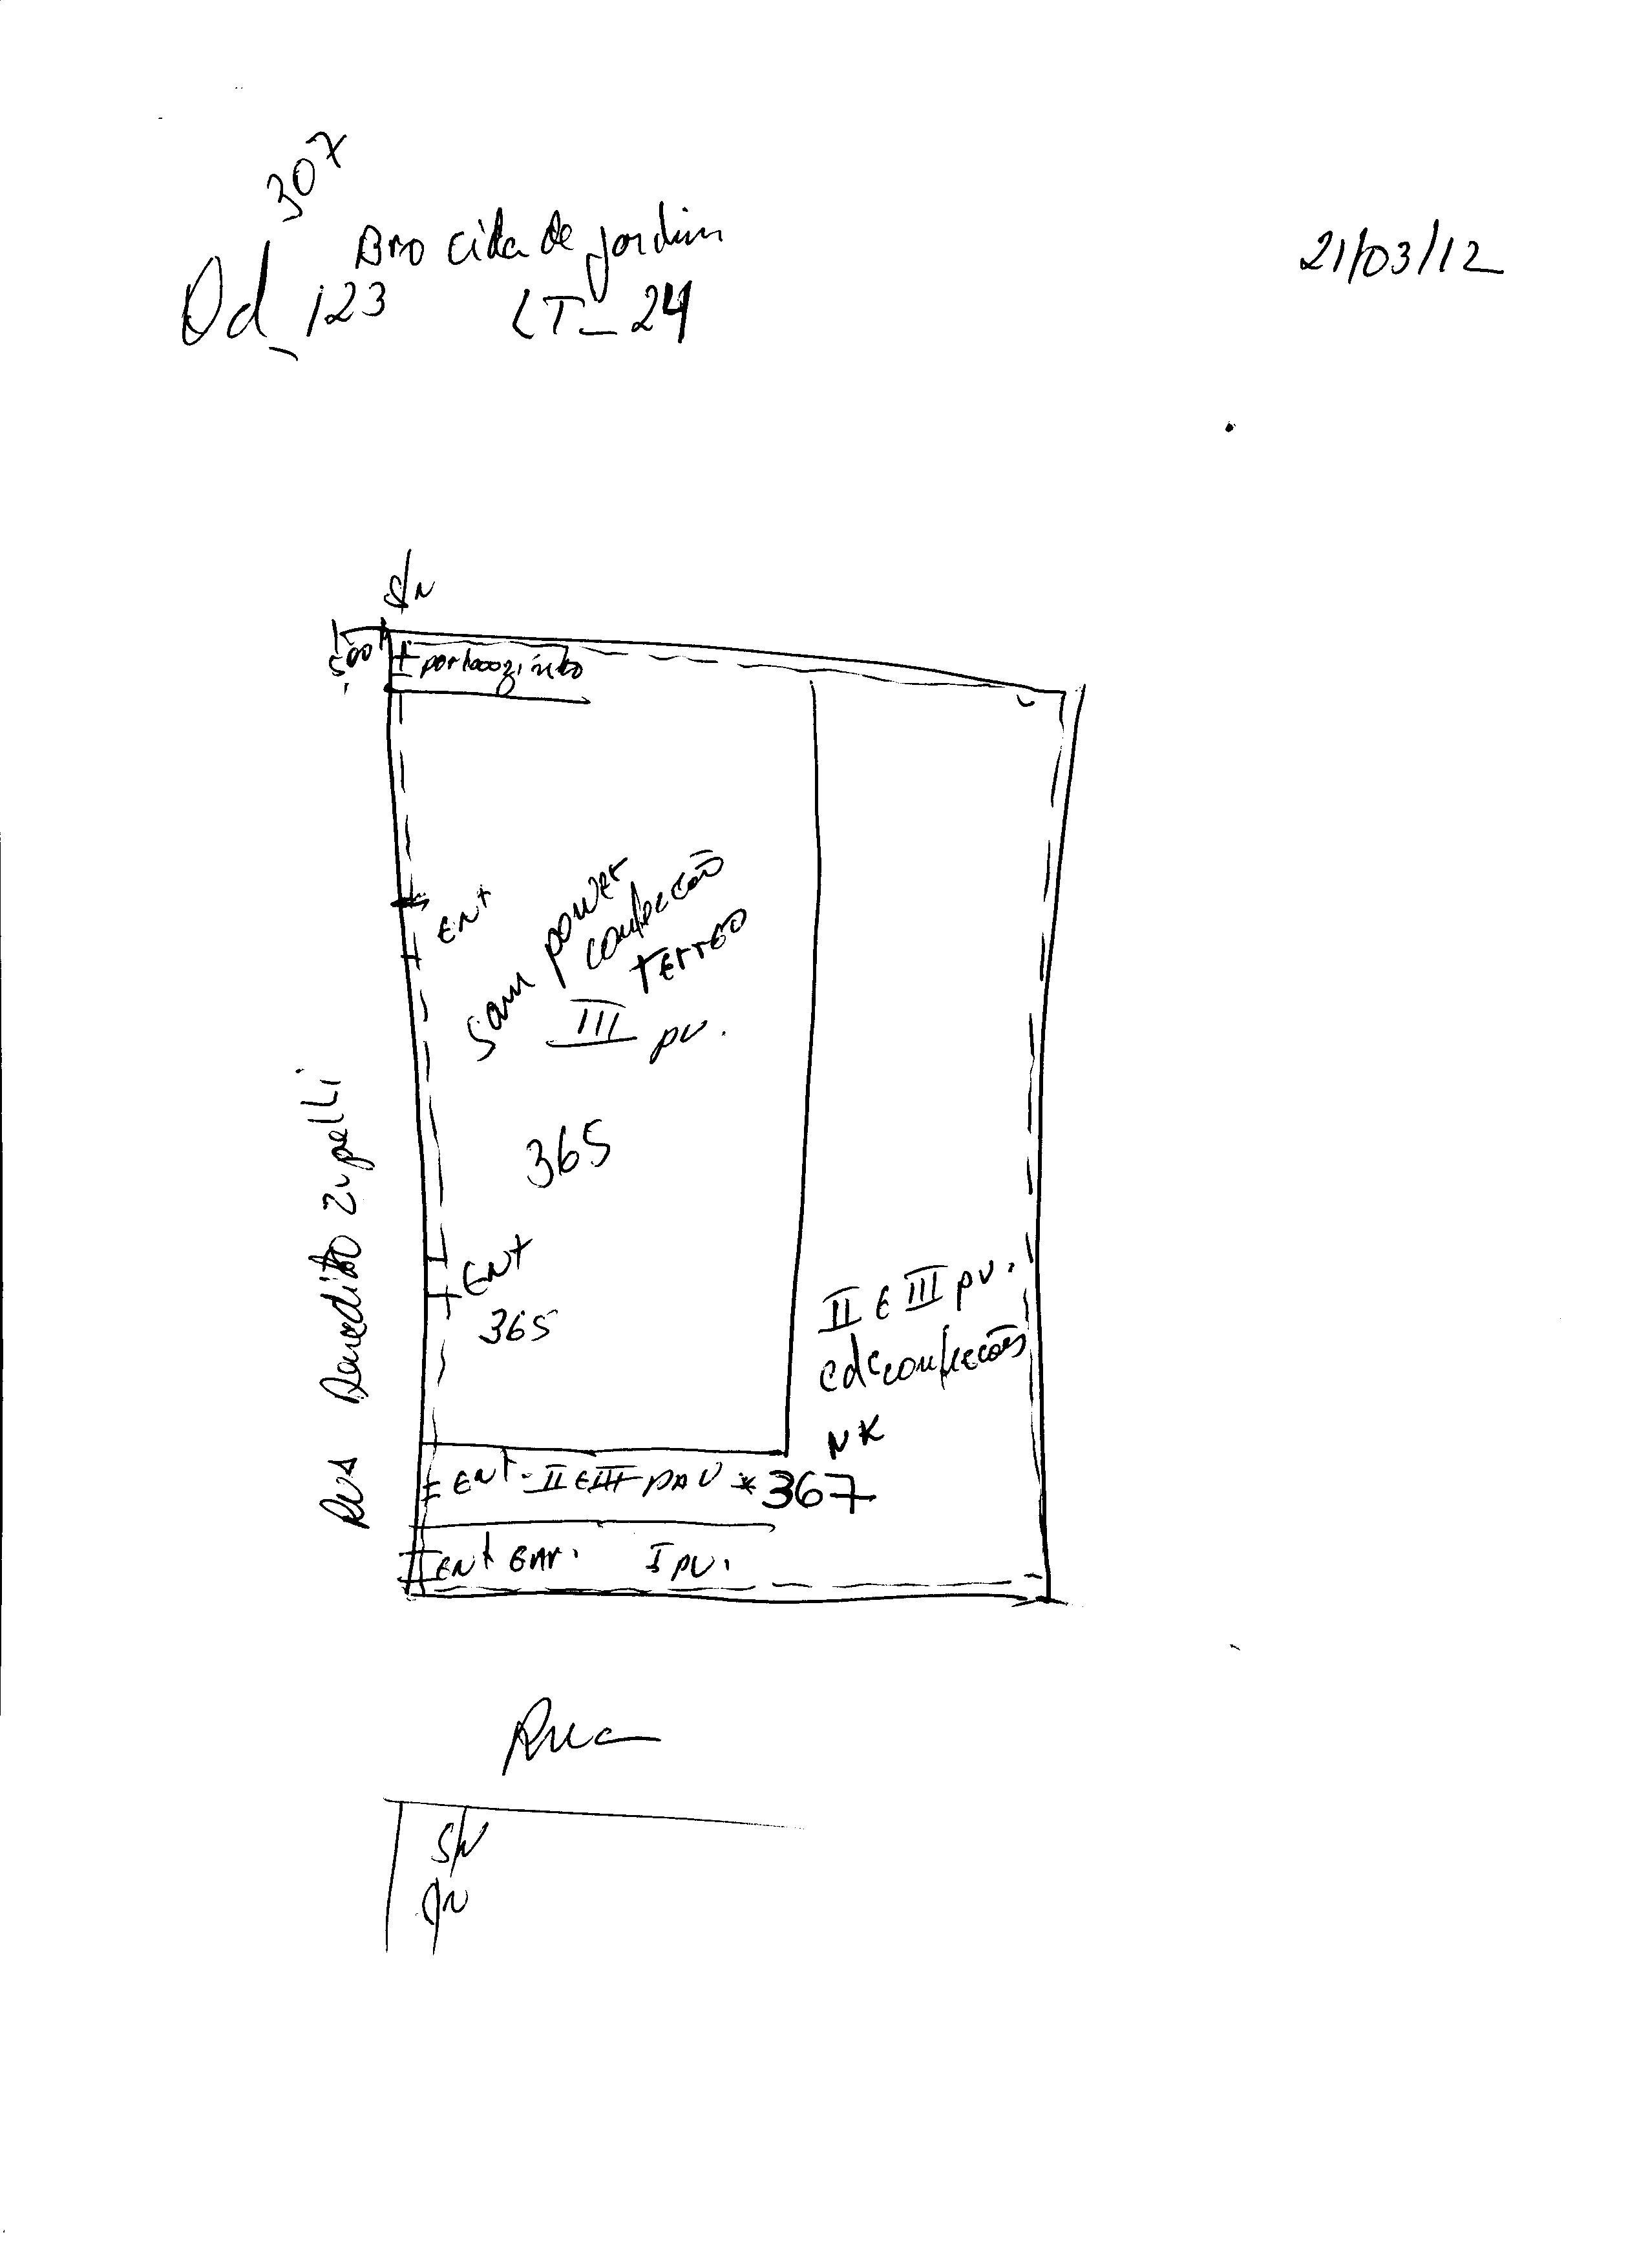 307
Bro cidade jardim
Qd_123 LT_24
21/03/12
S/N
5,00
portaozinho
ENT
Sam power
confecção
terreo
III pv.
365
Rua Benedito Zupelli
ENT
365
II E III pv.
cdc confecções
NK
ENT. II E III PAV * 367
ENT GAR. I PV.
Rua
S/N